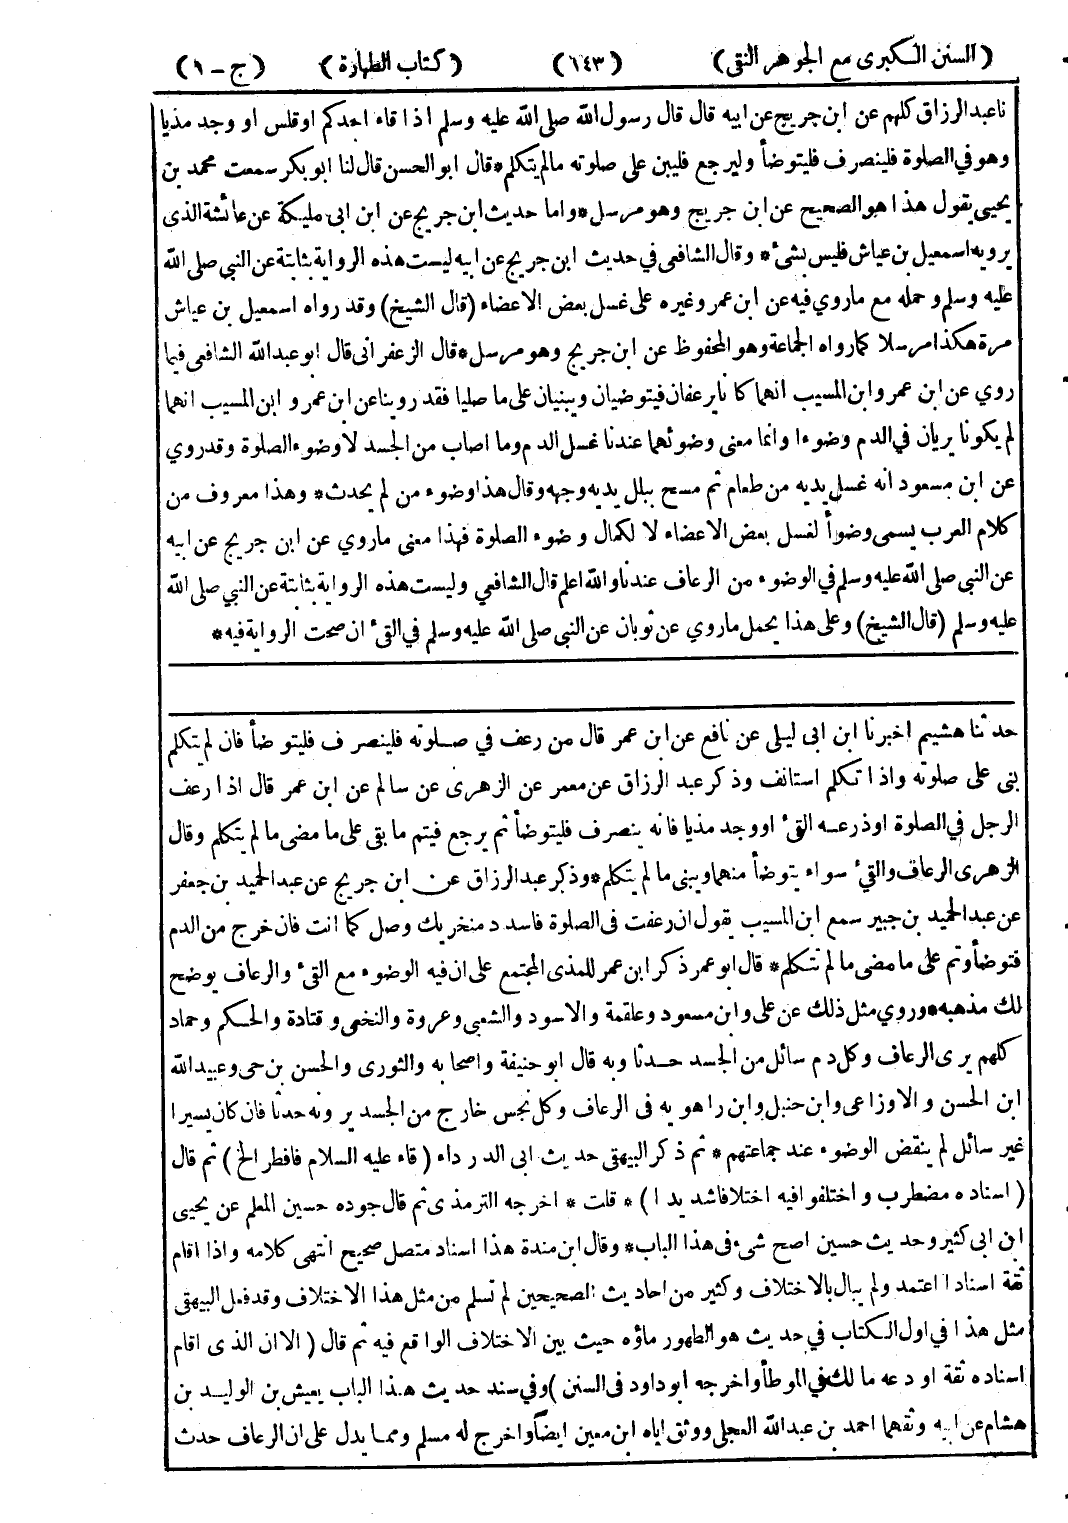 (السنن الكبرى مع الجوهر النقى) (١٤٣) (كتاب الطهارة) (ج - ١)
نا عبد الرزاق كلهم عن ابن جريج عن ابيه قال قال رسول الله صلى الله عليه وسلم اذا قاء احدكم او قلس او وجد مذيا
وهو في الصلوة فلينصرف فليتوضأ وليرجع فليبن على صلوته ما لم يتكلم * قال ابو الحسن قال لنا ابو بكر سمعت محمد بن
يحيى يقول هذا هو الصحيح عن ابن جريج وهو مرسل * واما حديث ابن جريج عن ابن ابى مليكة عن عائشة الذى
يرويه اسمعيل بن عياش فليس بشئ * وقال الشافعى في حديث ابن جريج عن ابيه ليست هذه الرواية بثابتة عن النبي صلى الله
عليه وسلم وحمله مع ماروي فيه عن ابن عمر وغيره على غسل بعض الاعضاء (قال الشيخ) وقد رواه اسمعيل بن عياش
مرة هكذا مرسلا كما رواه الجماعة وهو المحفوظ عن ابن جريج وهو مرسل * قال الزعفرانى قال ابو عبد الله الشافعى فيما
روي عن ابن عمر وابن المسيب انهما كانا يرعفان فيتوضيان ويبنيان على ما صليا فقد روينا عن ابن عمر و ابن المسيب انهما
لم يكونا يريان في الدم وضوءا وانما معنى وضوئهما عندنا غسل الدم وما اصاب من الجسد لا وضوء الصلوة وقد روي
عن ابن مسعود انه غسل يديه من طعام ثم مسح ببلل يديه وجهه وقال هذا وضوء من لم يحدث * وهذا معروف من
كلام العرب يسمى وضوأ لغسل بعض الاعضاء لا لكمال وضوء الصلوة فهذا معنى ماروي عن ابن جريج عن ابيه
عن النبي صلى الله عليه وسلم في الوضوء من الرعاف عندنا والله اعلم قال الشافعي وليست هذه الرواية بثابتة عن النبي صلى الله
عليه وسلم (قال الشيخ) وعلى هذا يحمل ماروي عن ثوبان عن النبي صلى الله عليه وسلم في القئ ان صحت الرواية فيه *
حدثنا هشيم اخبرنا ابن ابى ليلى عن نافع عن ابن عمر قال من رعف في صلوته فلينصرف فليتوضأ فان لم يتكلم
بنى على صلوته واذا تكلم استانف وذكر عبد الرزاق عن معمر عن الزهرى عن سالم عن ابن عمر قال اذا رعف
الرجل في الصلوة او ذرعه القئ او وجد مذيا فانه ينصرف فليتوضأ ثم يرجع فيتم ما بقى على ما مضى ما لم يتكلم وقال
الزهرى الرعاف والقئ سواء يتوضأ منهما ويبنى ما لم يتكلم * وذكر عبد الرزاق عن ابن جريج عن عبد الحميد بن جعفر
عن عبد الحميد بن جبير سمع ابن المسيب يقول ان رعفت فى الصلوة فاسدد منخريك وصل كما انت فان خرج من الدم
فتوضأ وتم على ما مضى ما لم تتكلم * قال ابو عمر ذكر ابن عمر للمذى المجتمع على ان فيه الوضوء مع القئ والرعاف يوضح
لك مذهبه * وروي مثل ذلك عن على وابن مسعود وعلقمة والاسود والشعبى وعروة والنخعى و قتادة والحكم وحماد
كلهم يرى الرعاف وكل دم سائل من الجسد حدثا وبه قال ابو حنيفة واصحابه والثورى والحسن بن حى وعبيد الله
ابن الحسن والاوزاعى وابن حنبل وابن راهويه فى الرعاف وكل نجس خارج من الجسد يرونه حدثا فان كان يسيرا
غير سائل لم ينقض الوضوء عند جماعتهم * ثم ذكر البيهقى حديث ابى الدرداء (قاء عليه السلام فافطر الخ) ثم قال
(اسناده مضطرب و اختلفوا فيه اختلافا شديدا) * قلت * اخرجه الترمذى ثم قال جوده حسين المعلم عن يحيى
ابن ابى كثير وحديث حسين اصح شئ فى هذا الباب * وقال ابن مندة هذا اسناد متصل صحيح انتهى كلامه واذا اقام
ثقة اسنادا اعتمد ولم يبال بالاختلاف وكثير من احاديث الصحيحين لم تسلم من مثل هذا الاختلاف وقد فعل البيهقى
مثل هذا في اول الكتاب في حديث هو الطهور ماؤه حيث بين الاختلاف الواقع فيه ثم قال (الا ان الذى اقام
اسناده ثقة اودعه مالك في الموطأ واخرجه ابو داود فى السنن) وفي سند حديث هذا الباب يعيش بن الوليد بن
هشام عن ابيه وثقهما احمد بن عبد الله العجلى ووثق اباه ابن معين ايضا واخرج له مسلم ومما يدل على ان الرعاف حدث